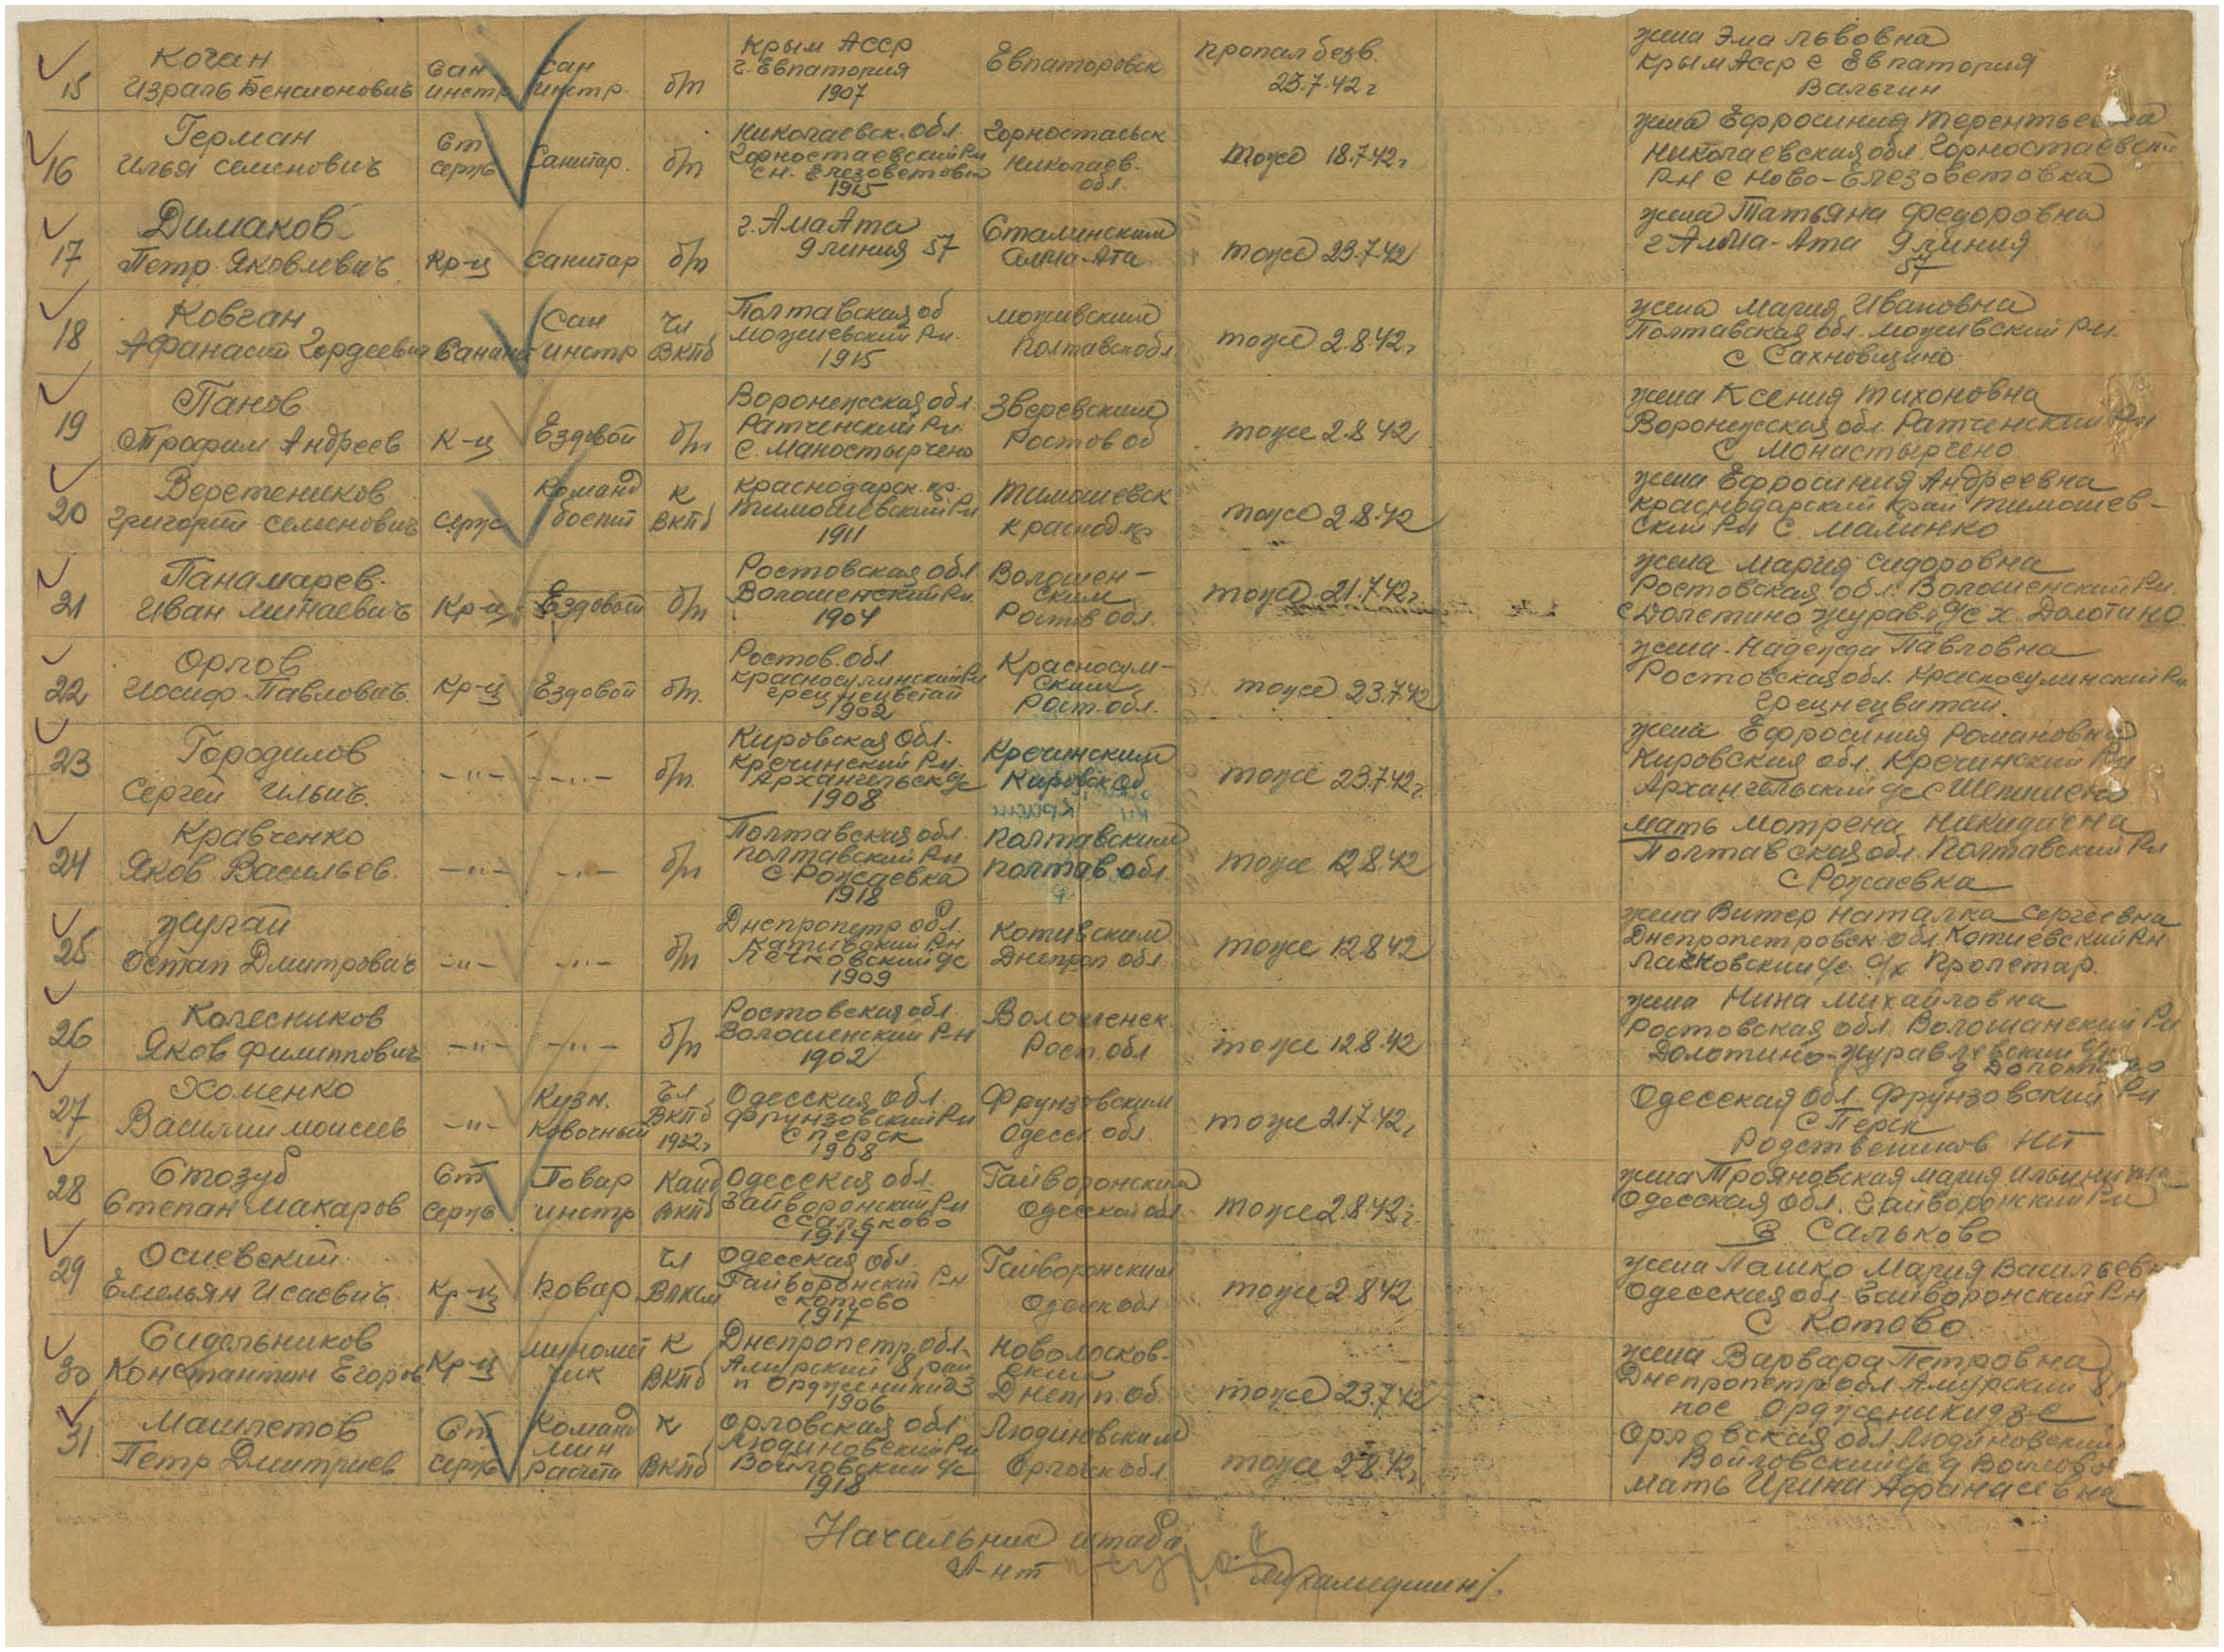 15
Коган
Израль Бенсионовичъ
Сан
инстр
Сан
инстр.
б/п
Крым Асср
г. Евпатория
1907
Евпаторовск
пропал безв.
23.7.42 г
жена Эма Львовна
Крым Асср с Евпатория
16
Герман
Илья Семеновичъ
Ст
сержъ
Санитар.
б/п
Николаевск. обл.
Горностаевский Рн
1915
Горностаевск
Николаев.
обл.
тоже 18.7.42 г
жена Ефросиния
Николаевская обл. Горностаевск
Рн с Ново-Елезоветовка
17
Димаков
Петр Яковлевичъ
Кр-ц
Санитар
б/п
г. Ама Ата
9 линия 57
Сталинским
Алма-Ата
тоже 23.7.42
жена Татьяна Федоровна
г Алма-Ата 9 линия
57
18
Ковган
Афанасий Гордеевич
Сан
инстр
Чл
ВКПб
Полтавская об
1915
Полтавск обл
тоже 2.8.42 г
жена Мария Ивановна
Полтавская обл.
с Сахновщино
19
Панов
Трофим Андреев
К-ц
Ездовой
б/п
Воронежская обл
Ратченский Рн
С. Маностырчено
Зверевским
Ростов об
тоже 2.8.42
жена Ксения Тихоновна
Воронежская обл Ратченский Рн
С Монастырчено
20
Веретеников
Григорий Семенович
Серж
Команд
К
ВКПб
Краснодарск. кр.
Тимошевский Рн
1911
Тимошевск
Краснод кр
тоже 2.8.42
жена Ефросиния Андреевна
Краснодарский Край Тимошев-
ский Рн С. Малинко
21
Панамарев
Иван Минаевичъ
Кр-ц
Ездовой
б/п
Ростовская обл
Волошенский Рн.
1904
Волошен-
ским
Ростов обл.
тоже 21.7.42 г
жена Мария Сидоровна
Ростовская обл. Волошенский Рн.
22
Орлов
Иосиф Павловичъ
Кр-ц
Ездовой
б/п.
Ростов. обл
Красносулинский Рн
1902
Красносул-
ским
Рост. обл.
тоже 23.7.42
жена Надежда Павловна
Ростовская обл. Красносулинский Рн
23
Городилов
Сергей Ильичъ.
-"-
-"-
б/п
Кировская обл.
Кречинский Рн.
Архангельск с/с
1908
Кречинским
Кировск об
тоже 23.7.42 г.
жена Ефросиния Романовна
Кировская обл. Кречинский Рн
Архангельский с/с
24
Кравченко
Яков Васильев.
-"-
-"-
б/п
Полтавская обл.
Полтавский Рн
с Рождевка
1918
Полтавским
Полтав. обл.
тоже 12.8.42
мать Мотрена
Полтавская обл. Полтавский Рн
с Рожаевка
25
Жугай
Остап Дмитровичъ
-"-
-"-
б/п
Днепропетр обл.
1909
Котивским
Днепроп обл
тоже 12.8.42
жена Витер Наталка Сергеевна
Днепропетровск обл Котиевский Рн
с/х Пролетар.
26
Колесников
Яков Филиппович
-"-
-"-
б/п
Ростовская обл.
Волошенский Р-н
1902
Волошенск.
Росп. обл
тоже 12.8.42
жена Нина Михайловна
Ростовская обл. Волошанский Рн
27
Хоменко
Василий Моисеев
-"-
Кузн.
Ковочный
Чл
ВКПб
1932 г
Одесская обл.
Фрунзовский Рн
С Перск
1908
Фрунзовским
Одесск. обл.
тоже 21.7.42 г
Одесская обл. Фрунзовский Рн
С Перск
Родствеников нет
28
Стозуб
Степан Макаров
Ст
сержъ
Повар
инстр
Канд
ВКПб
Одесская обл.
Гайворонский Рн
с Сальково
1914
Гайворонским
Одесской обл.
тоже 2.8.42 г.
жена Трояновская Мария Ильинична
Одесская обл. Гайворонский Рн
С. Сальково
29
Осиевский
Емельян Исаевичъ.
Кр-ц
Повар
Чл
Влксм
Одесская обл.
Гайворонский Рн
с Котово
1917
Гайворонским
Одесск обл
тоже 2.8.42
жена Пашко Мария Васильевн
Одесская обл. Гайворонский Рн
С Котово
30
Сидельников
Константин Егоров
Кр-ц
миномет
чик
К
ВКПб
Днепропетр. обл.
п Орджоникидз
1906
Новомосков-
ским
Днепп. об.
тоже 23.7.42
жена Варвара Петровна
Днепропетр обл. Амурский
пос Орджоникидзе
31
Машлетов
Петр Дмитриев
Ст
сержъ
Команд
мин
расчета
К
ВКПб
Орловская обл
Людиновский Рн
Войловский с/с
1918
Людиновским
Орловск обл
тоже 2.8.42 г
Орловская обл Людиновский
Войловский с/с д Войлово
мать Ирина Афанасевна
Начальник штаба